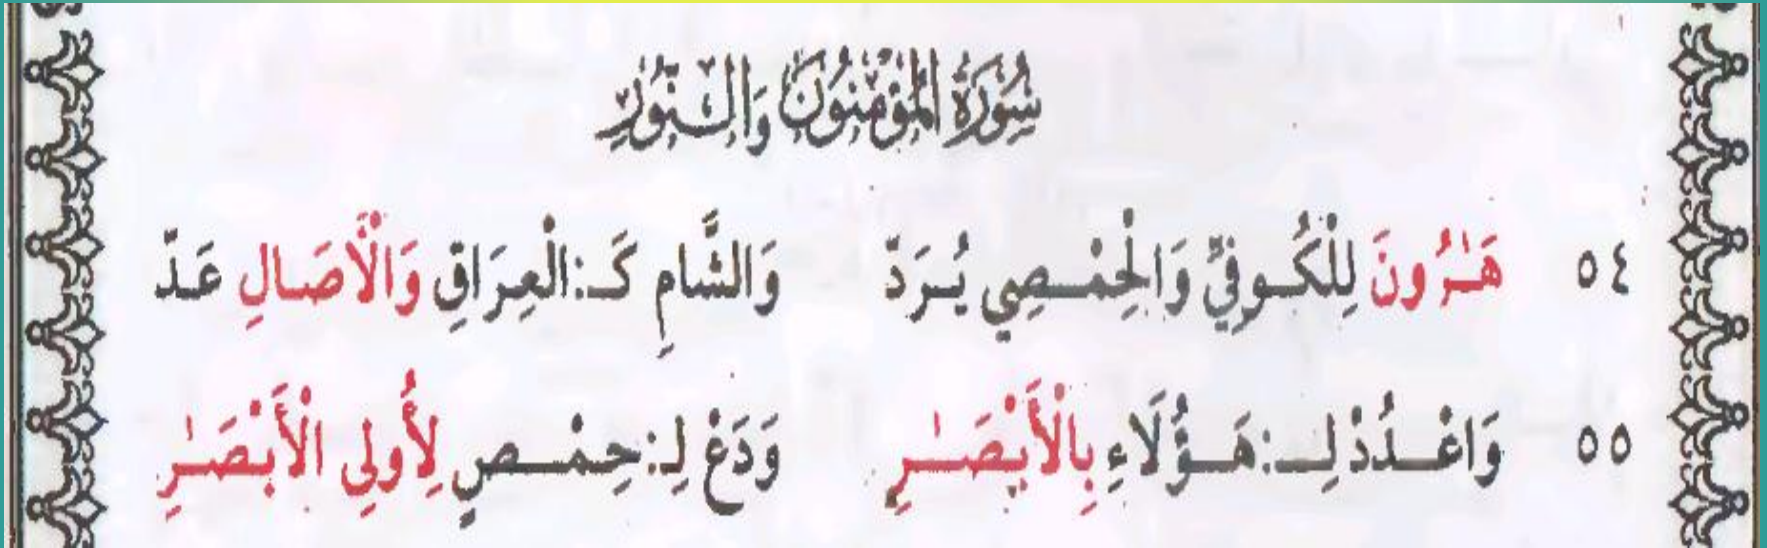 سُورَةُ الْمُؤْمِنُونَ وَالنُّورِ
٥٤ هَٰرُونَ لِلْكُوفِيِّ وَالْحِمْصِي يُرَدّ وَالشَّامِ كَـ:الْعِرَاقِ وَالْأَصَالِ عَدّ
٥٥ وَاعْدُدْ لِـ:هَؤُلَاءِ بِالْأَبْصَٰرِ وَدَعْ لِـ:حِمْصٍ لِأُولِى الْأَبْصَٰرِ